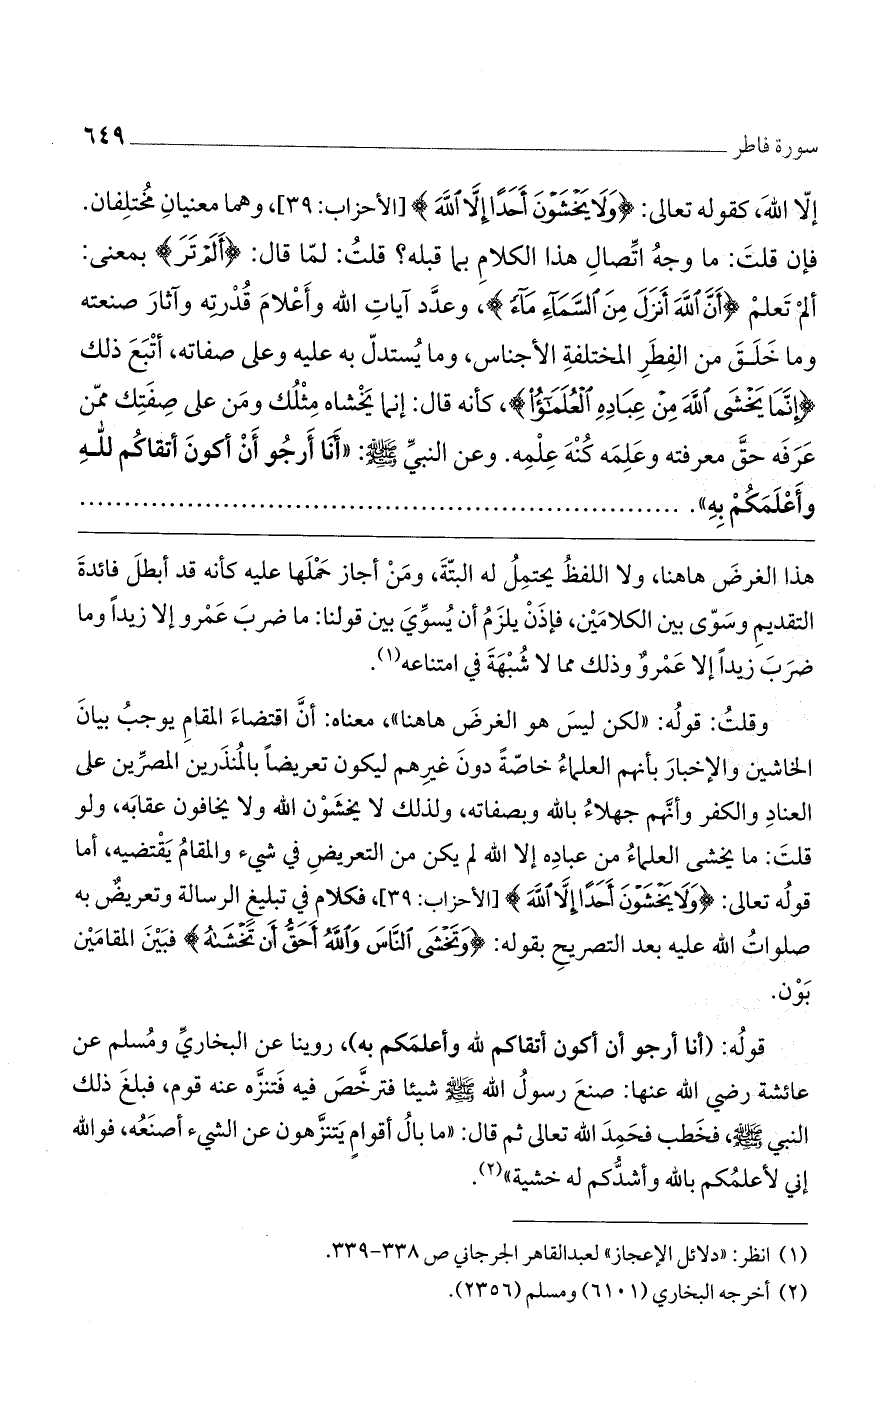 سورة فاطر ٦٤٩
إلّا اللهَ، كقوله تعالى: ﴿وَلَا يَخْشَوْنَ أَحَدًا إِلَّا ٱللَّهَ﴾ [الأحزاب: ٣٩]، وهما معنيانِ مُختلِفان.
فإن قلتَ: ما وجهُ اتِّصالِ هذا الكلامِ بما قبله؟ قلتُ: لمّا قال: ﴿أَلَمْ تَرَ﴾ بمعنى:
ألمْ تَعلمْ ﴿أَنَّ ٱللَّهَ أَنزَلَ مِنَ ٱلسَّمَآءِ مَآءً﴾، وعدَّد آياتِ الله وأَعْلامَ قُدْرتِه وآثارَ صنعته
وما خَلَـقَ من الفِطَرِ المختلفةِ الأجناس، وما يُستدلّ به عليه وعلى صفاته، أتْبَعَ ذلك
﴿إِنَّمَا يَخْشَى ٱللَّهَ مِنْ عِبَادِهِ ٱلْعُلَمَـٰٓؤُا۟﴾، كأنه قال: إنما يَخْشاه مِثْلُك ومَن على صِفَتِك ممّن
عَرَفَه حقَّ معرفته وعَلِمَه كُنْهَ عِلْمِه. وعن النبيِّ ﷺ: «أَنَا أَرجُو أَنْ أكونَ أتقاكُم للَّـهِ
وأَعْلَمَكُمْ بِهِ». ..................................................................
هذا الغرضَ هاهنا، ولا اللفظُ يحتمِلُ له البتّةَ، ومَنْ أجاز حَمْلَها عليه كأنه قد أبطلَ فائدةَ
التقديمِ وسَوّى بين الكلامَيْن، فإذَنْ يلزَمُ أن يُسوِّيَ بين قولنا: ما ضربَ عَمْرو إلا زيداً وما
ضرَبَ زيداً إلا عَمْروٌ وذلك مما لا شُبْهَةَ في امتناعه(١).
وقلتُ: قولُه: «لكن ليسَ هو الغرضَ هاهنا»، معناه: أنَّ اقتضاءَ المقامِ يوجبُ بيانَ
الخاشين والإخبارَ بأنهم العلماءُ خاصّةً دونَ غيرِهم ليكون تعريضاً بالمُنذَرين المصرِّين على
العنادِ والكفر وأنَّهم جهلاءُ بالله وبصفاته، ولذلك لا يخشَوْن الله ولا يخافون عقابَه، ولو
قلتَ: ما يخشى العلماءُ من عبادِه إلا الله لم يكن من التعريضِ في شيء والمقامُ يَقْتضيه، أما
قولُه تعالى: ﴿وَلَا يَخْشَوْنَ أَحَدًا إِلَّا ٱللَّهَ﴾ [الأحزاب: ٣٩]، فكلام في تبليغِ الرسالة وتعريضٌ به
صلواتُ الله عليه بعد التصريحِ بقوله: ﴿وَتَخْشَى ٱلنَّاسَ وَٱللَّهُ أَحَقُّ أَن تَخْشَىٰهُ﴾ فبَيْنَ المقامَيْن
بَوْن.
قولُه: (أنا أرجو أن أكون أتقاكم لله وأعلمَكم به)، روينا عن البخاريِّ ومُسلم عن
عائشة رضي الله عنها: صنعَ رسولُ الله ﷺ شيئا فترخَّصَ فيه فَتنزَّه عنه قوم، فبلغَ ذلك
النبي ﷺ، فخَطب فحَمِدَ الله تعالى ثم قال: «ما بالُ أقوامٍ يَتنزَّهون عن الشيء أصنَعُه، فوالله
إني لأعلمُكم بالله وأشدُّكم له خشية»(٢).
(١) انظر: «دلائل الإعجاز» لعبدالقاهر الجرجاني ص ٣٣٨-٣٣٩.
(٢) أخرجه البخاري (٦١٠١) ومسلم (٢٣٥٦).